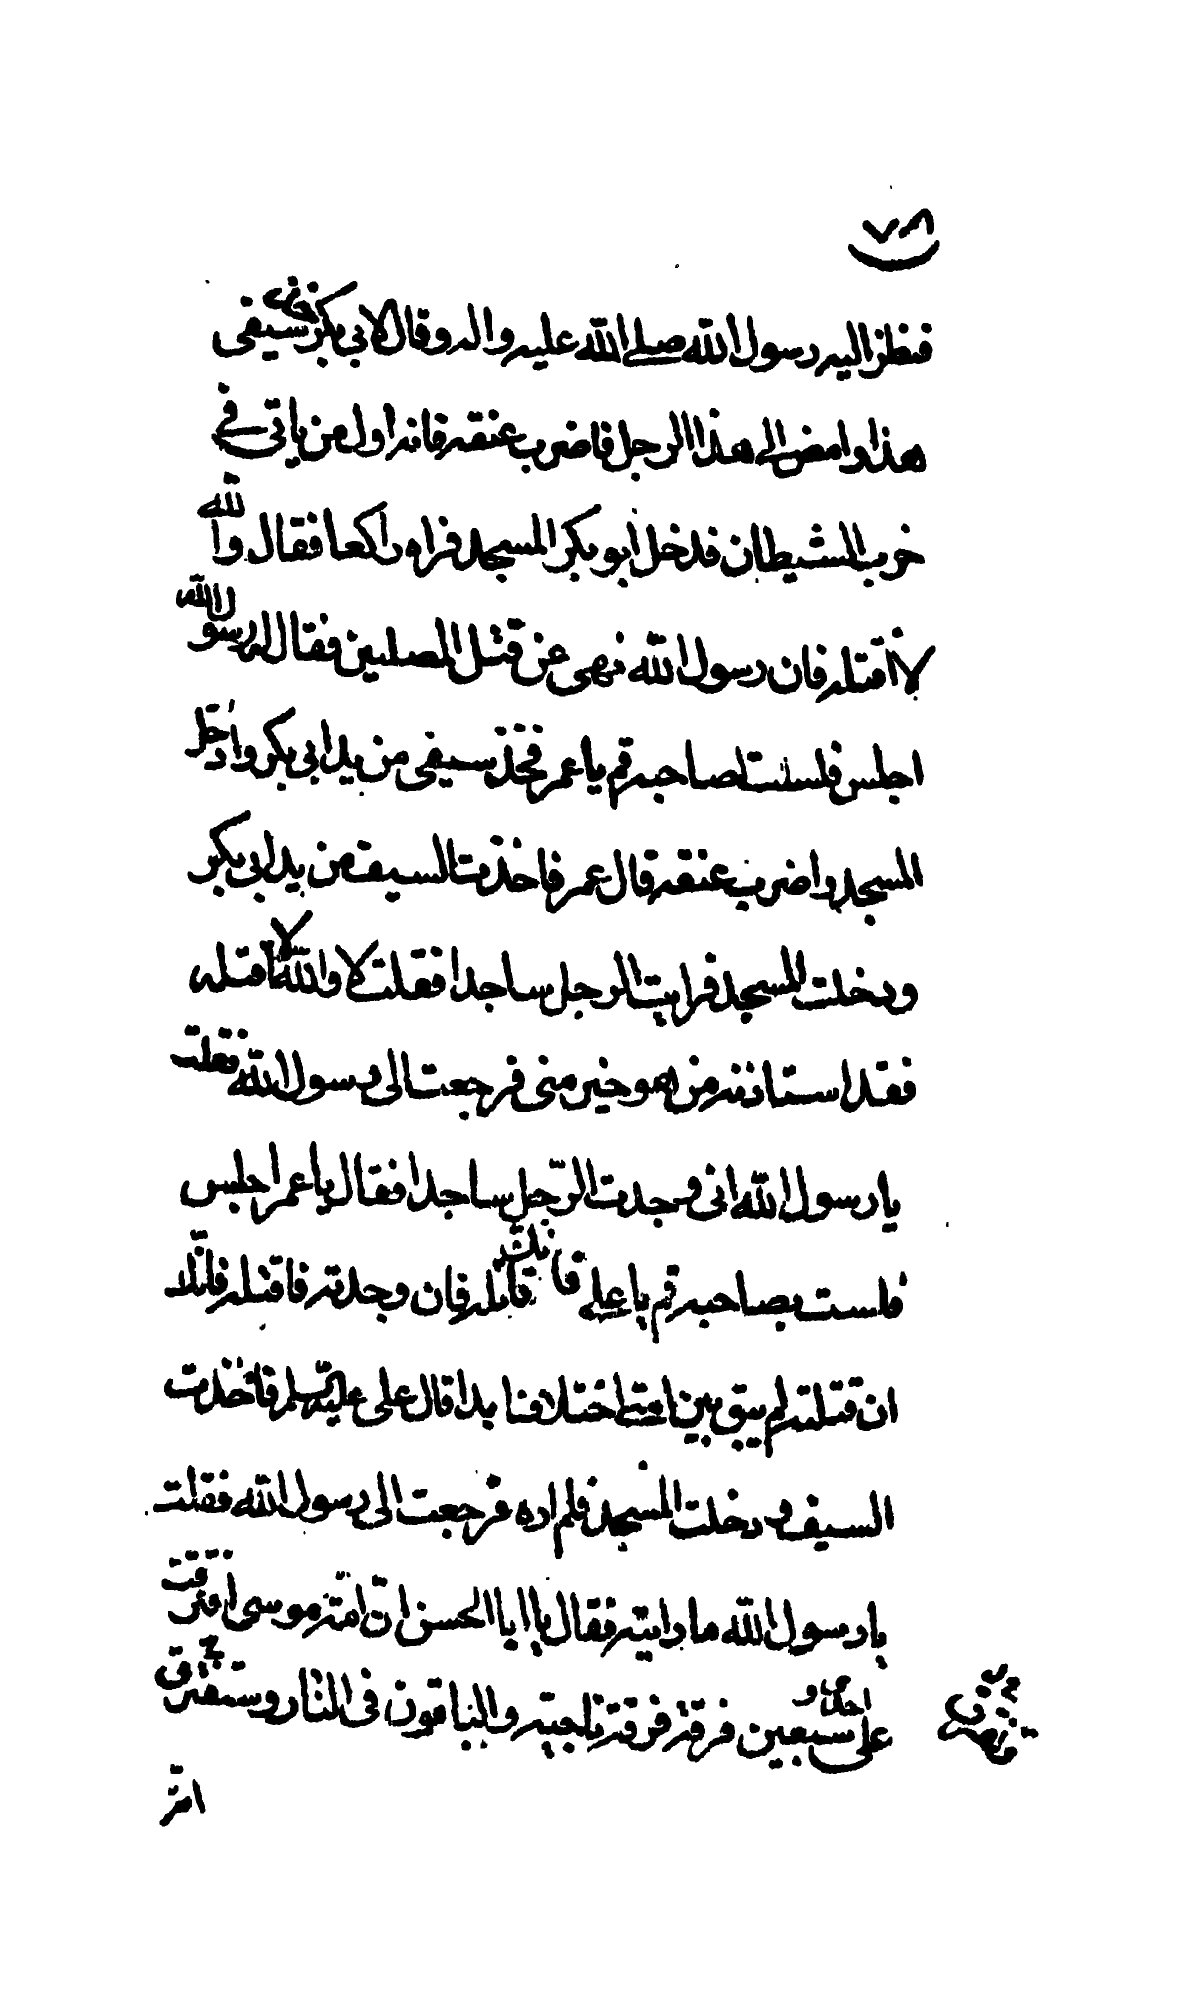 ٧٨
فنظر اليه رسول الله صلى الله عليه واله وقال لابي بكر خذ سيفي
هذا وامض الى هذا الرجل فاضرب عنقه فانه اول من ياتي في
حزب الشيطان فدخل ابو بكر المسجد فراه راكعا فقال والله
لا اقتله فان رسول الله نهى عن قتل المصلين فقال له رسول الله
اجلس فلست لصاحبه قم يا عمر فخذ سيفي من يد ابي بكر وادخل
المسجد واضرب عنقه قال عمر فاخذت السيف من يد ابي بكر
ودخلت المسجد فرايت الرجل ساجدا فقلت لا والله لا اقتله
فقد استاذنه من هو خير مني فرجعت الى رسول الله فقلت
يا رسول الله اني وجدت الرجل ساجدا فقال يا عمر اجلس
فلست بصاحبه قم يا علي فانك قاتله فان وجدته فاقتله فانك
ان قتلته لم يبق بين امتي اختلافا ابدا قال علي عليه السلم فاخذت
السيف ودخلت المسجد فلم اره فرجعت الى رسول الله فقلت
يا رسول الله ما رايته فقال يا ابا الحسن ان امة موسى افترقت
على احدى و سبعين فرقة فرقة ناجية والباقون في النار وستفترق